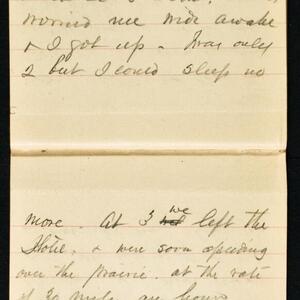 worried me wide awake
& I got up - Was only
2 but I could sleep no
more. At 3 we left the
Hotel, & were soon speeding
over the prairie at the rate
of 30 miles an hour